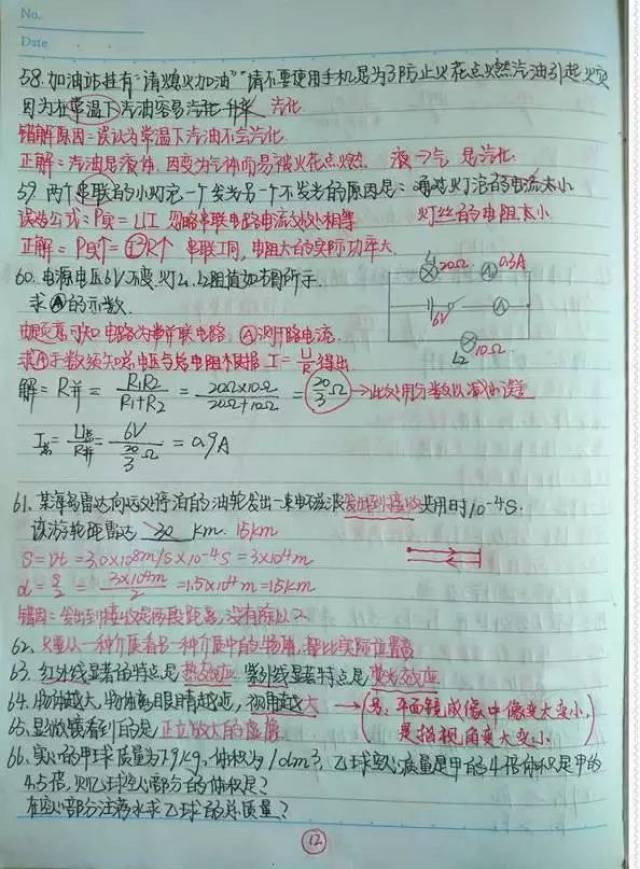 No.
Date
58. 加油站挂有"请熄火加油""请不要使用手机是为了防止火花点燃汽油引起火灾
因为在常温下汽油容易汽化 升华 汽化
错解原因=误认为常温下汽油不会汽化
正解=汽油是液体,因变为气体而易被火花点燃. 液→气 是汽化.
59. 两个串联的小灯泡一个发光另一个不发光的原因是: 通过灯泡的电流太小
误为公式=P实=UI 忽略串联电路电流处处相等 灯丝的电阻太小
正解= P实↑=I²R↑ 串联I同,电阻大的实际功率大.
60. 电源电压6V不变,灯L1、L2阻值如图所示.
求Ⓐ的示数.
L1 20Ω A 0.3A
6V A
L2 10Ω
由题意可知电路为并联电路,Ⓐ测干路电流.
求Ⓐ示数须知总电压与总电阻根据 I=U/R 得出
解=R并=R1R2/R1+R2=20Ω×10Ω/20Ω+10Ω=20/3Ω→此处用分数以减小误差
I总=U总/R并=6V/20/3Ω=0.9A
61. 某海岛雷达向远处停泊的油轮发出一束电磁波发出到接收共用时10-4S.
该游轮距雷达 30 km. 15km
S=vt=3.0×108m/s×10-4s=3×104m
d=S/2=3×104m/2=1.5×104m=15km
错因=发出到接收是两段距离,没有除以2.
62. 只要从一种介质看另一种介质中的物体,都比实际位置高
63. 红外线显著的特点是热效应 紫外线显著特点是荧光效应
64. 物体越大,物体离眼睛越近,视角越大 →(另,平面镜成像中像变大变小,
是指视角变大变小)
65. 显微镜看到的是正立放大的虚像
66. 实心的甲球质量为7.9kg,体积为1dm3,乙球空心质量是甲的4倍体积是甲的
4.5倍,则乙球空心部分的体积是?
在空心部分注满水求乙球的总质量?
12